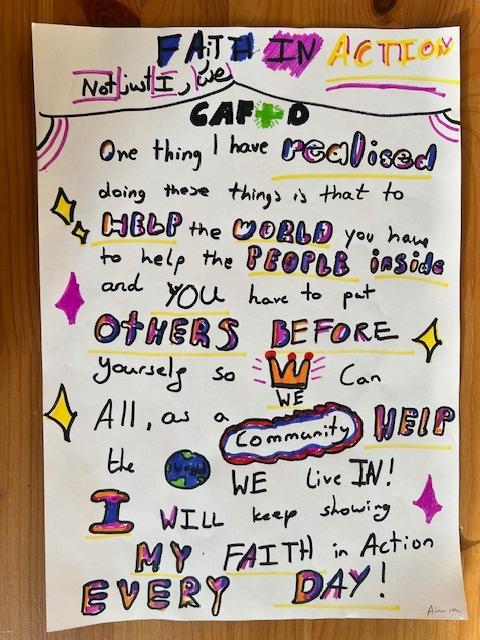 FAiTH IN ACTION
Not just I, we
CAFOD
One thing I have realised
doing these things is that to
HELP the WORLD you have
to help the PEOPLE inside
and YOU have to put
OTHERS BEFORE
yourself so WE Can
All, as a Community HELP
the WE Live IN!
I WILL keep showing
MY FAITH in Action
EVERY DAY!